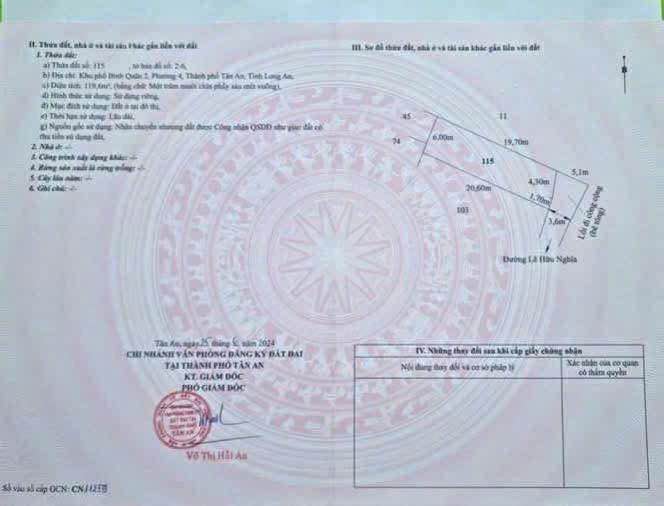 II. Thửa đất, nhà ở và tài sản khác gắn liền với đất
1. Thửa đất:
a) Thửa đất số: 115 , tờ bản đồ số: 2-6,
b) Địa chỉ: Khu phố Bình Quân 2, Phường 4, Thành phố Tân An, Tỉnh Long An,
c) Diện tích: 119,6m², (bằng chữ: Một trăm mười chín phẩy sáu mét vuông),
d) Hình thức sử dụng: Sử dụng riêng,
đ) Mục đích sử dụng: Đất ở tại đô thị,
e) Thời hạn sử dụng: Lâu dài,
g) Nguồn gốc sử dụng: Nhận chuyển nhượng đất được Công nhận QSDĐ như giao đất có
thu tiền sử dụng đất,
2. Nhà ở: -/-
3. Công trình xây dựng khác: -/-
4. Rừng sản xuất là rừng trồng: -/-
5. Cây lâu năm: -/-
6. Ghi chú: -/-
III. Sơ đồ thửa đất, nhà ở và tài sản khác gắn liền với đất
B
45
11
74
6,00m
19,70m
115
5,1m
4,30m
20,60m
1,70m
103
3,6m
Lối đi công cộng
(bê tông)
Đường Lê Hữu Nghĩa
Tân An, ngày 25 tháng 6 năm 2024
CHI NHÁNH VĂN PHÒNG ĐĂNG KÝ ĐẤT ĐAI
TẠI THÀNH PHỐ TÂN AN
KT. GIÁM ĐỐC
PHÓ GIÁM ĐỐC
Võ Thị Hải Âu
IV. Những thay đổi sau khi cấp giấy chứng nhận
Nội dung thay đổi và cơ sở pháp lý
Xác nhận của cơ quan
có thẩm quyền
Số vào sổ cấp GCN: CN